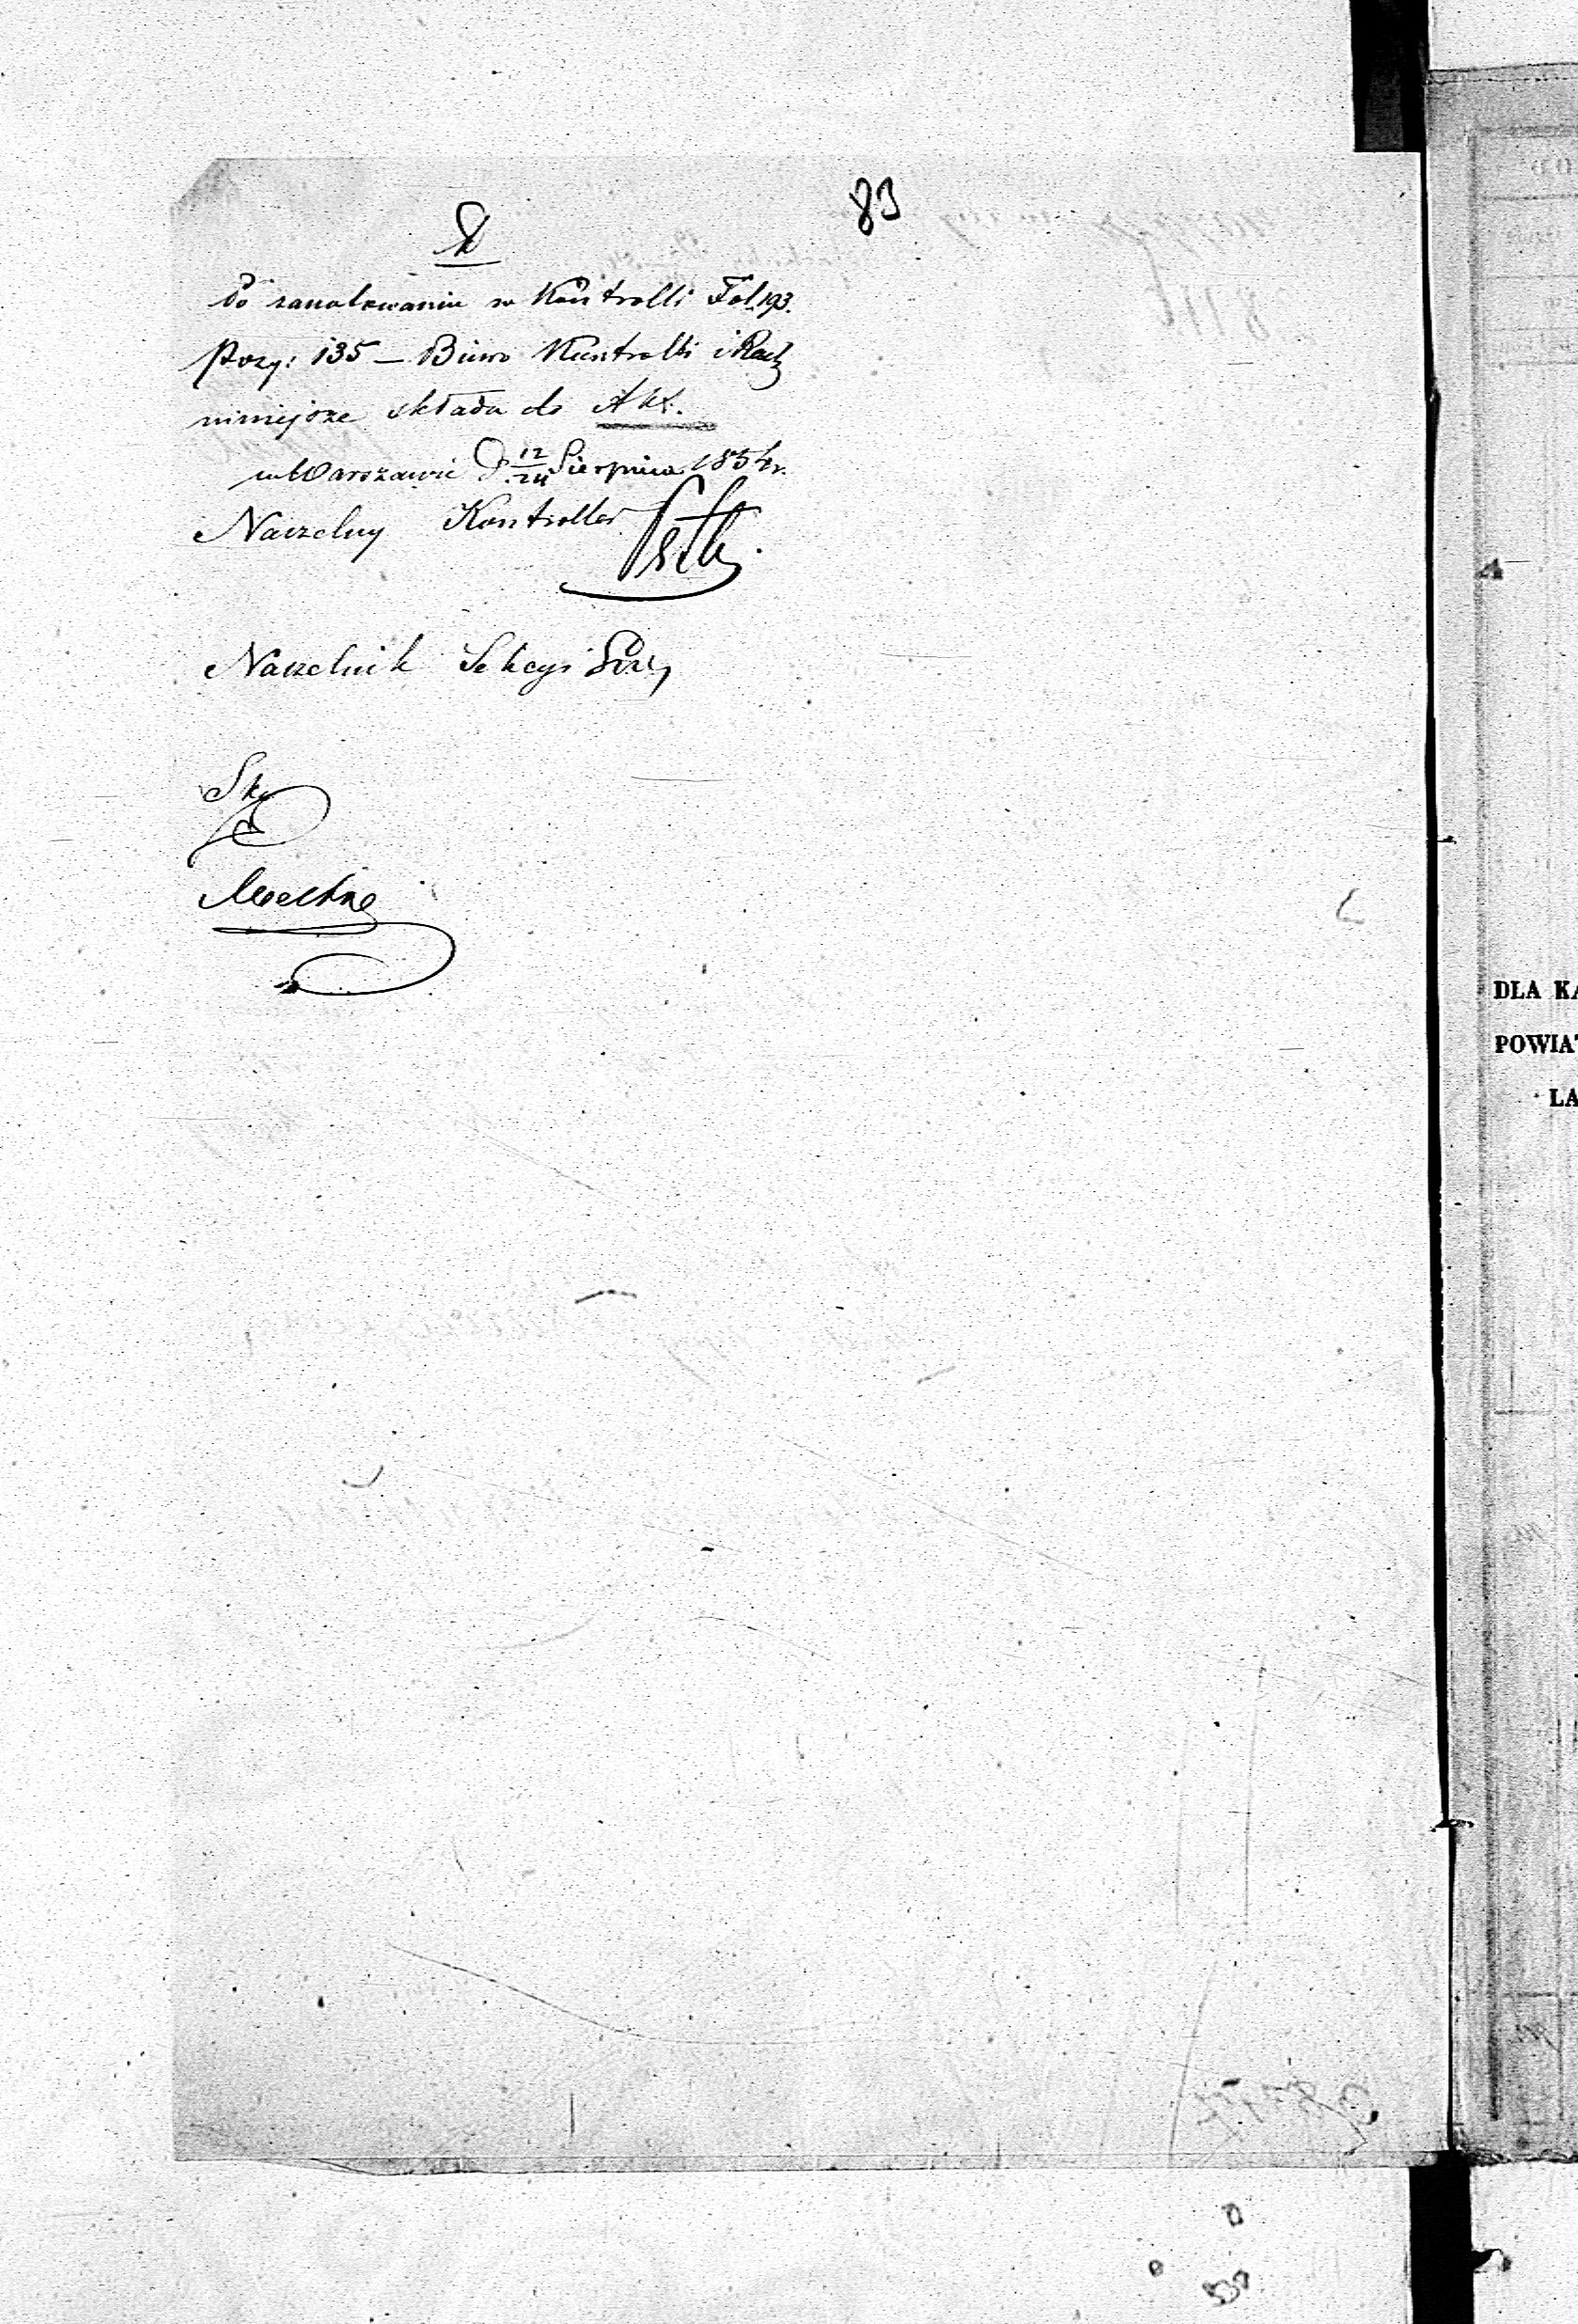 83
Po zanotowaniu w Kontrolli Fol. 193.
Pozy: 135 – Biuro Kontrolli i Rach
niniejsze składa do Akt.
w Warszawie D. 12/24 Sierpnia 1854 r.
Naczelny Kontroller
Naczelnik Sekcyi
DLA KA
POWIAT
LA